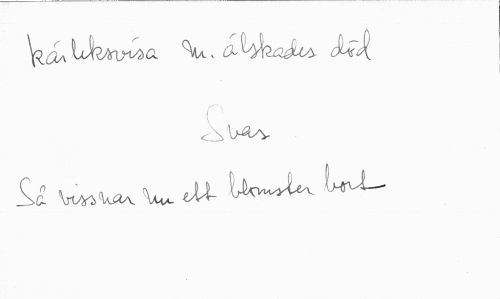 kärleksvisa m. älskades död
Svar
Så vissnar nu ett blomster bort